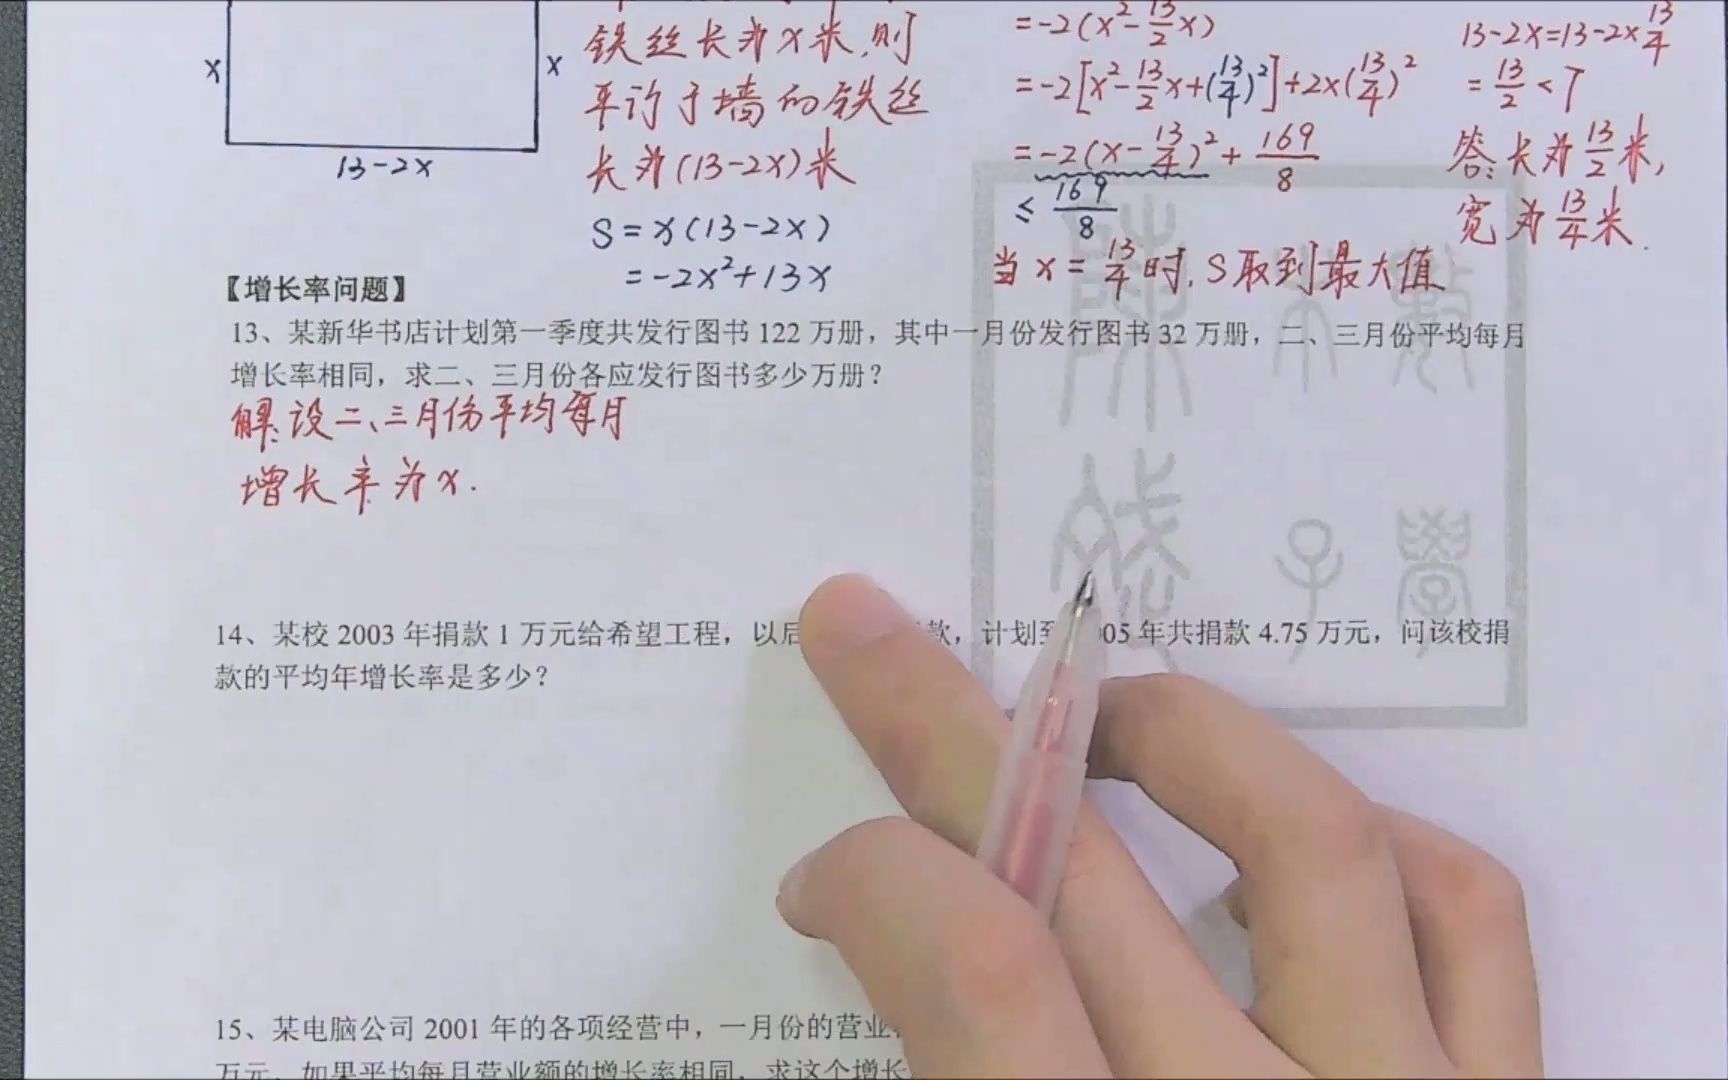 x
x
13-2x
铁丝长为x米,则
平行于墙的铁丝
长为(13-2x)米
S=x(13-2x)
=-2x²+13x
=-2(x²-13/2x)
=-2[x²-13/2x+(13/4)²]+2×(13/4)²
=-2(x-13/4)²+169/8
≤169/8
当x=13/4时,S取到最大值
13-2x=13-2×13/4
=13/2<7
答:长为13/2米,
宽为13/4米.
【增长率问题】
13、某新华书店计划第一季度共发行图书 122 万册，其中一月份发行图书 32 万册，二、三月份平均每月
增长率相同，求二、三月份各应发行图书多少万册？
解:设二、三月份平均每月
增长率为x.
14、某校 2003 年捐款 1 万元给希望工程，以后 款，计划到 05 年共捐款 4.75 万元，问该校捐
款的平均年增长率是多少？
15、某电脑公司 2001 年的各项经营中，一月份的营业
万元，如果平均每月营业额的增长率相同，求这个增长